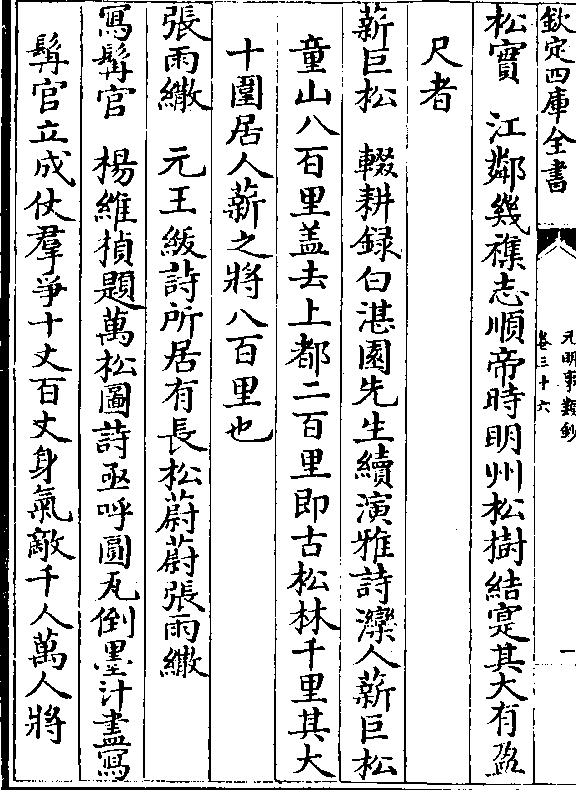 欽定四庫全書
元明事類鈔
卷三十六
一
松實　江鄰幾襍志順帝時明州松樹結寔其大有盈
尺者
薪巨松　輟耕録白湛園先生續演雅詩灤人薪巨松
童山八百里盖去上都二百里即古松林千里其大
十圍居人薪之將八百里也
張雨繖　元王綴詩所居有長松蔚蔚張雨繖
寫髯官　楊維楨題萬松圖詩亟呼圓瓦倒墨汁盡寫
髯官立成仗羣爭十丈百丈身氣敵千人萬人將